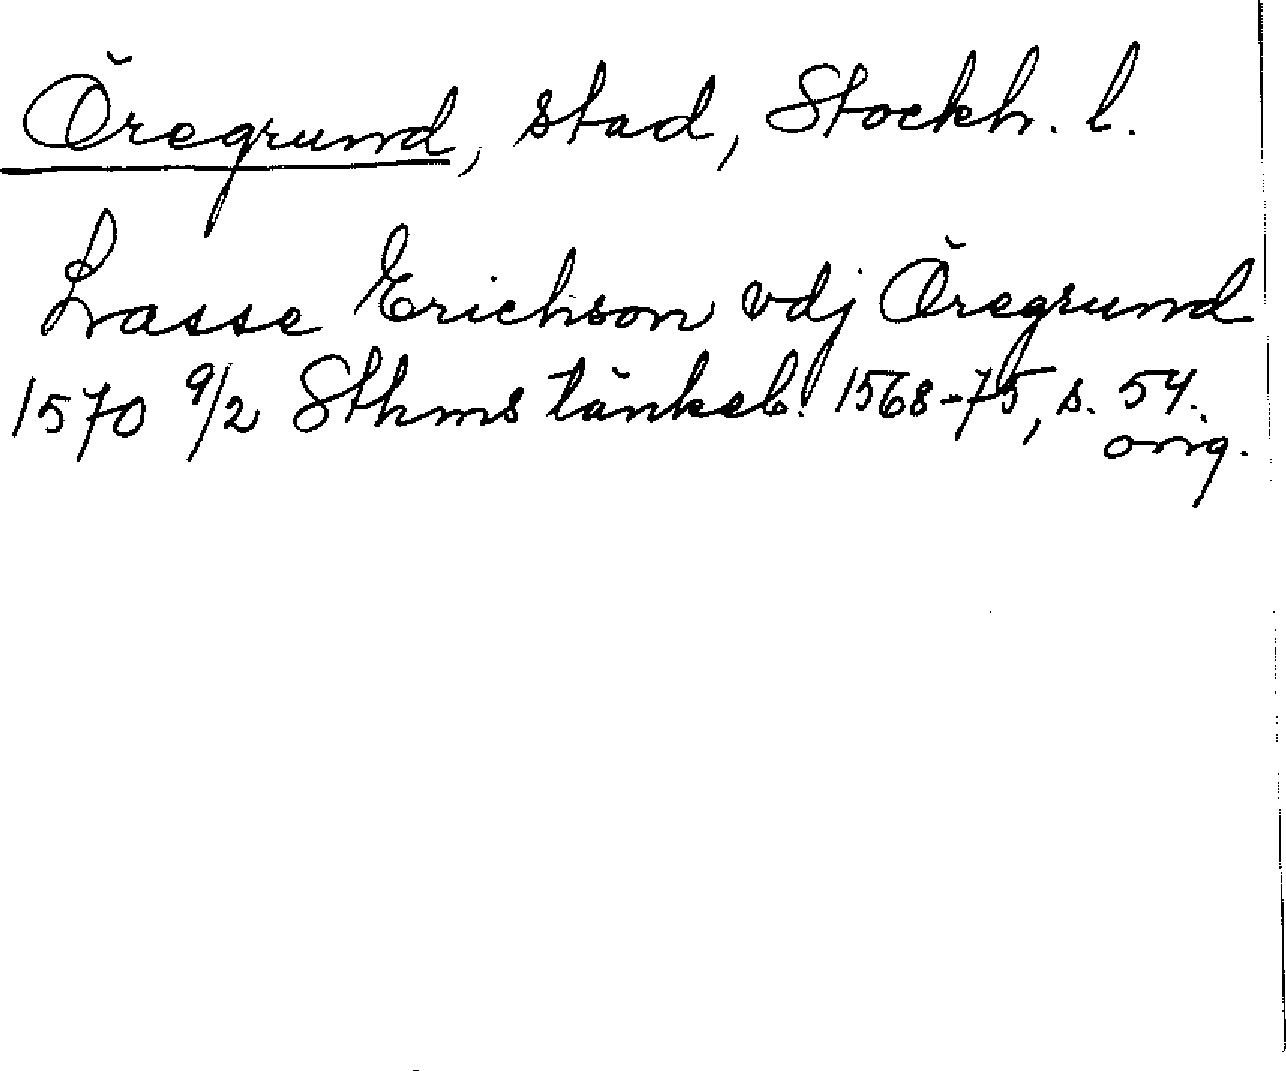 Öregrund, stad, Stockh. l.
Lasse Erichson vdj Öregrund
1570 9/2 Sthms tänkeb. 1568-75, s. 54.
orig.